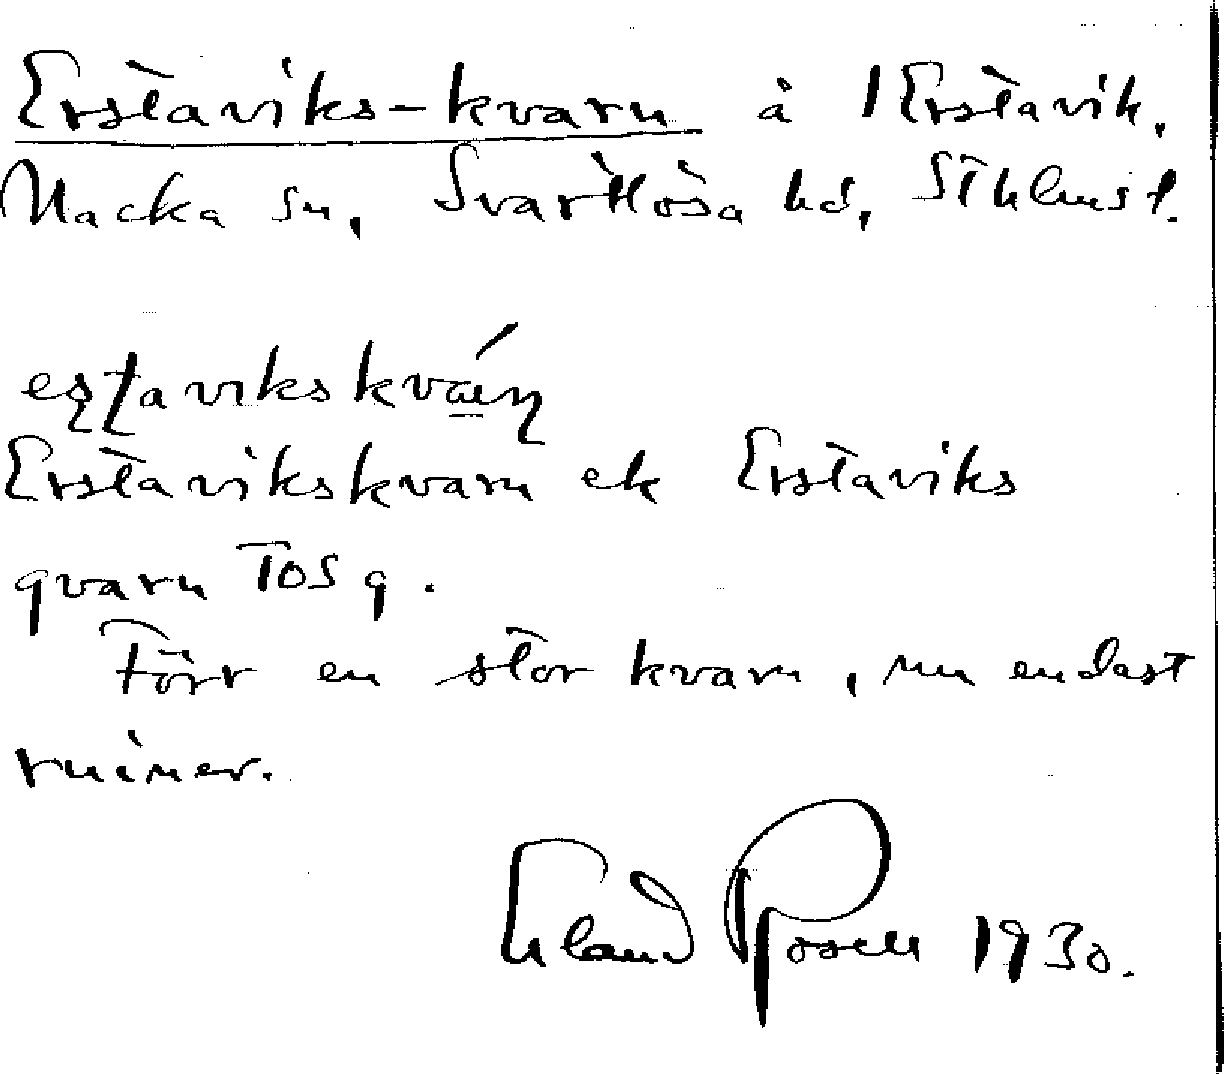 Erstaviks-kvarn å 1 Erstavik,
Nacka sn, Svartlösa hd, Sthlms l.
Erstavikskvarn ek Erstaviks
qvarn TOS 9.
Förr en stor kvarn, nu endast
ruiner.
Erland Rosell 1930.